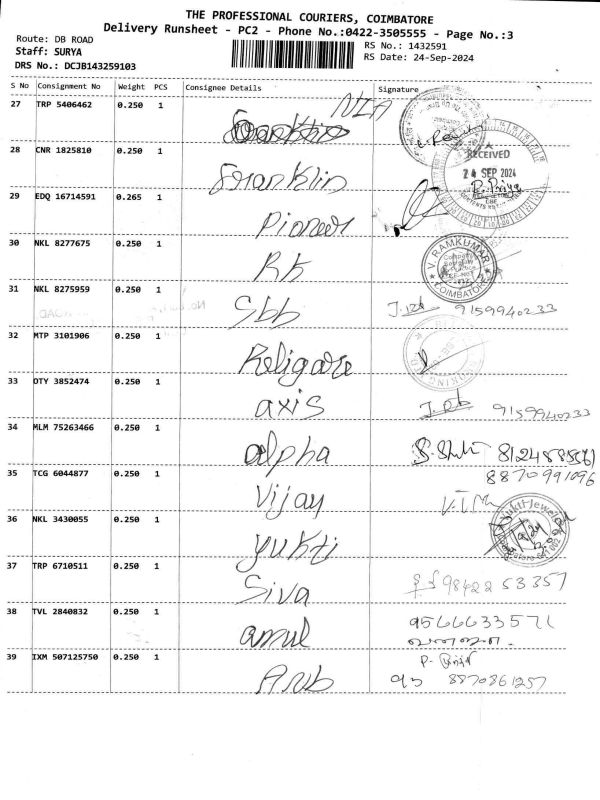 THE PROFESSIONAL COURIERS, COIMBATORE
Delivery Runsheet - PC2 - Phone No.:0422-3505555 - Page No.:3
Route: DB ROAD
RS No.: 1432591
Staff: SURYA
RS Date: 24-Sep-2024
DRS No.: DCJB143259103
S No Consignment No Weight PCS Consignee Details Signature
27 TRP 5406462 0.250 1 NIA
28 CNR 1825810 0.250 1 Franklin
RECEIVED
24 SEP 2024
29 EDQ 16714591 0.265 1 Pioneer
30 NKL 8277675 0.250 1 Rk
V. RAMKUMAR
COIMBATORE
31 NKL 8275959 0.250 1 Sbb 9159940233
32 MTP 3101906 0.250 1 Religare
33 DTY 3852474 0.250 1 axis 9159940233
34 MLM 75263466 0.250 1 alpha
35 TCG 6044877 0.250 1 Vijay 8870991096
36 NKL 3430055 0.250 1 yukti
37 TRP 6710511 0.250 1 Siva 98422 53357
38 TVL 2840832 0.250 1 amul 9566633571
39 IXM 507125750 0.250 1 8870861257